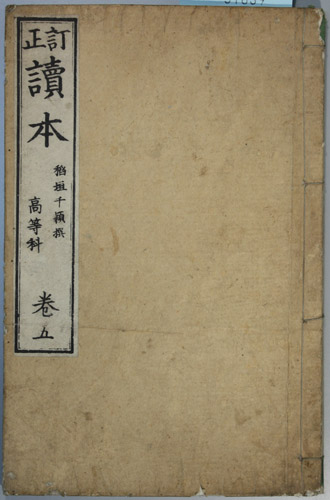 訂正
讀本
稻垣千穎撰
高等科
卷五